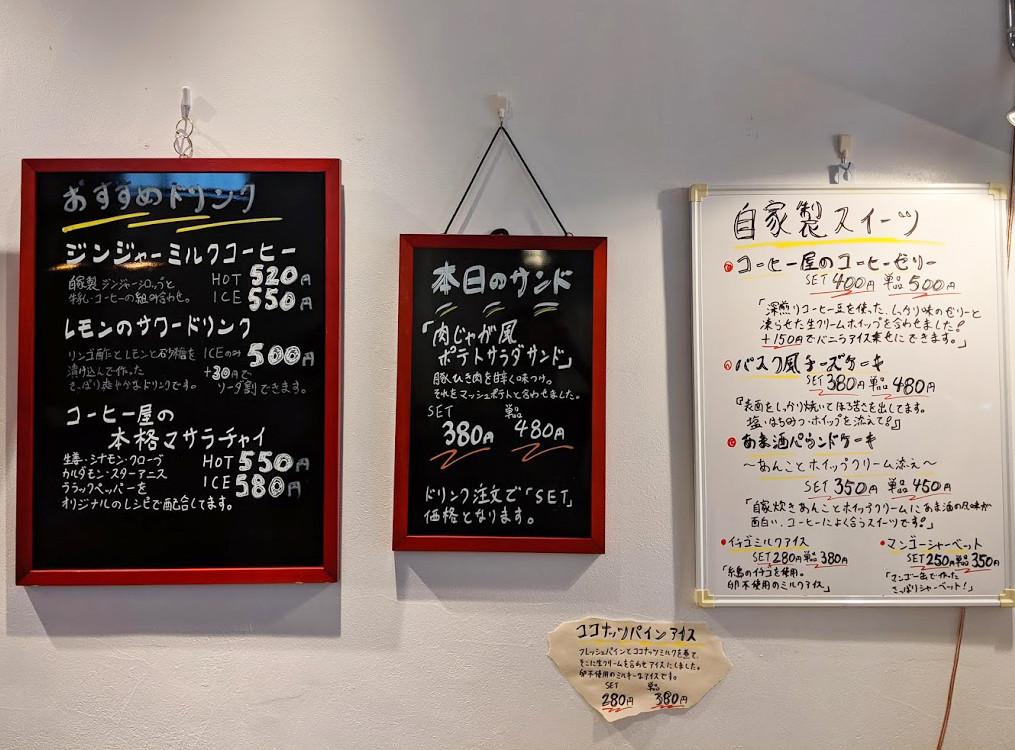 おすすめドリンク
ジンジャーミルクコーヒー
自家製ジンジャーシロップと HOT 520円
牛乳・コーヒーの組み合わせ。 ICE 550円
レモンのサワードリンク
リンゴ酢とレモンと砂糖を ICEのみ 500円
漬け込んで作った +30円で
さっぱり爽やかなドリンクです。 ソーダ割できます。
コーヒー屋の
本格マサラチャイ
生姜・シナモン・クローブ HOT 550円
カルダモン・スターアニス ICE 580円
ブラックペッパーを
オリジナルのレシピで配合してます。
本日のサンド
「肉じゃが風
ポテトサラダサンド」
豚ひき肉を甘辛く味つけ。
それをマッシュポテトと合わせました。
SET 単品
380円 480円
ドリンク注文で「SET」
価格となります。
自家製スイーツ
コーヒー屋のコーヒーゼリー
SET 400円 単品 500円
「深煎りコーヒー豆を使った、しっかり味のゼリーと
凍らせた生クリームホイップを合わせました!
+150円でバニラアイス乗せにできます。」
バスク風チーズケーキ
SET 380円 単品 480円
「表面をしっかり焼いてほろ苦さを出してます。
塩・はちみつ・ホイップを添えて!」
あま酒パウンドケーキ
〜あんことホイップクリーム添え〜
SET 350円 単品 450円
「自家炊きあんことホイップクリームにあま酒の風味が
面白い、コーヒーによく合うスイーツです!」
イチゴミルクアイス
SET 280円 単品 380円
「糸島のイチゴを使用。
卵不使用のミルクアイス」
マンゴーシャーベット
SET 250円 単品 350円
「マンゴー缶で作った
さっぱりシャーベット!」
ココナッツパインアイス
フレッシュパインとココナッツミルクを煮て、
そこに生クリームを合わせアイスにしました。
卵不使用のミルキーなアイスです。
SET 単品
280円 380円